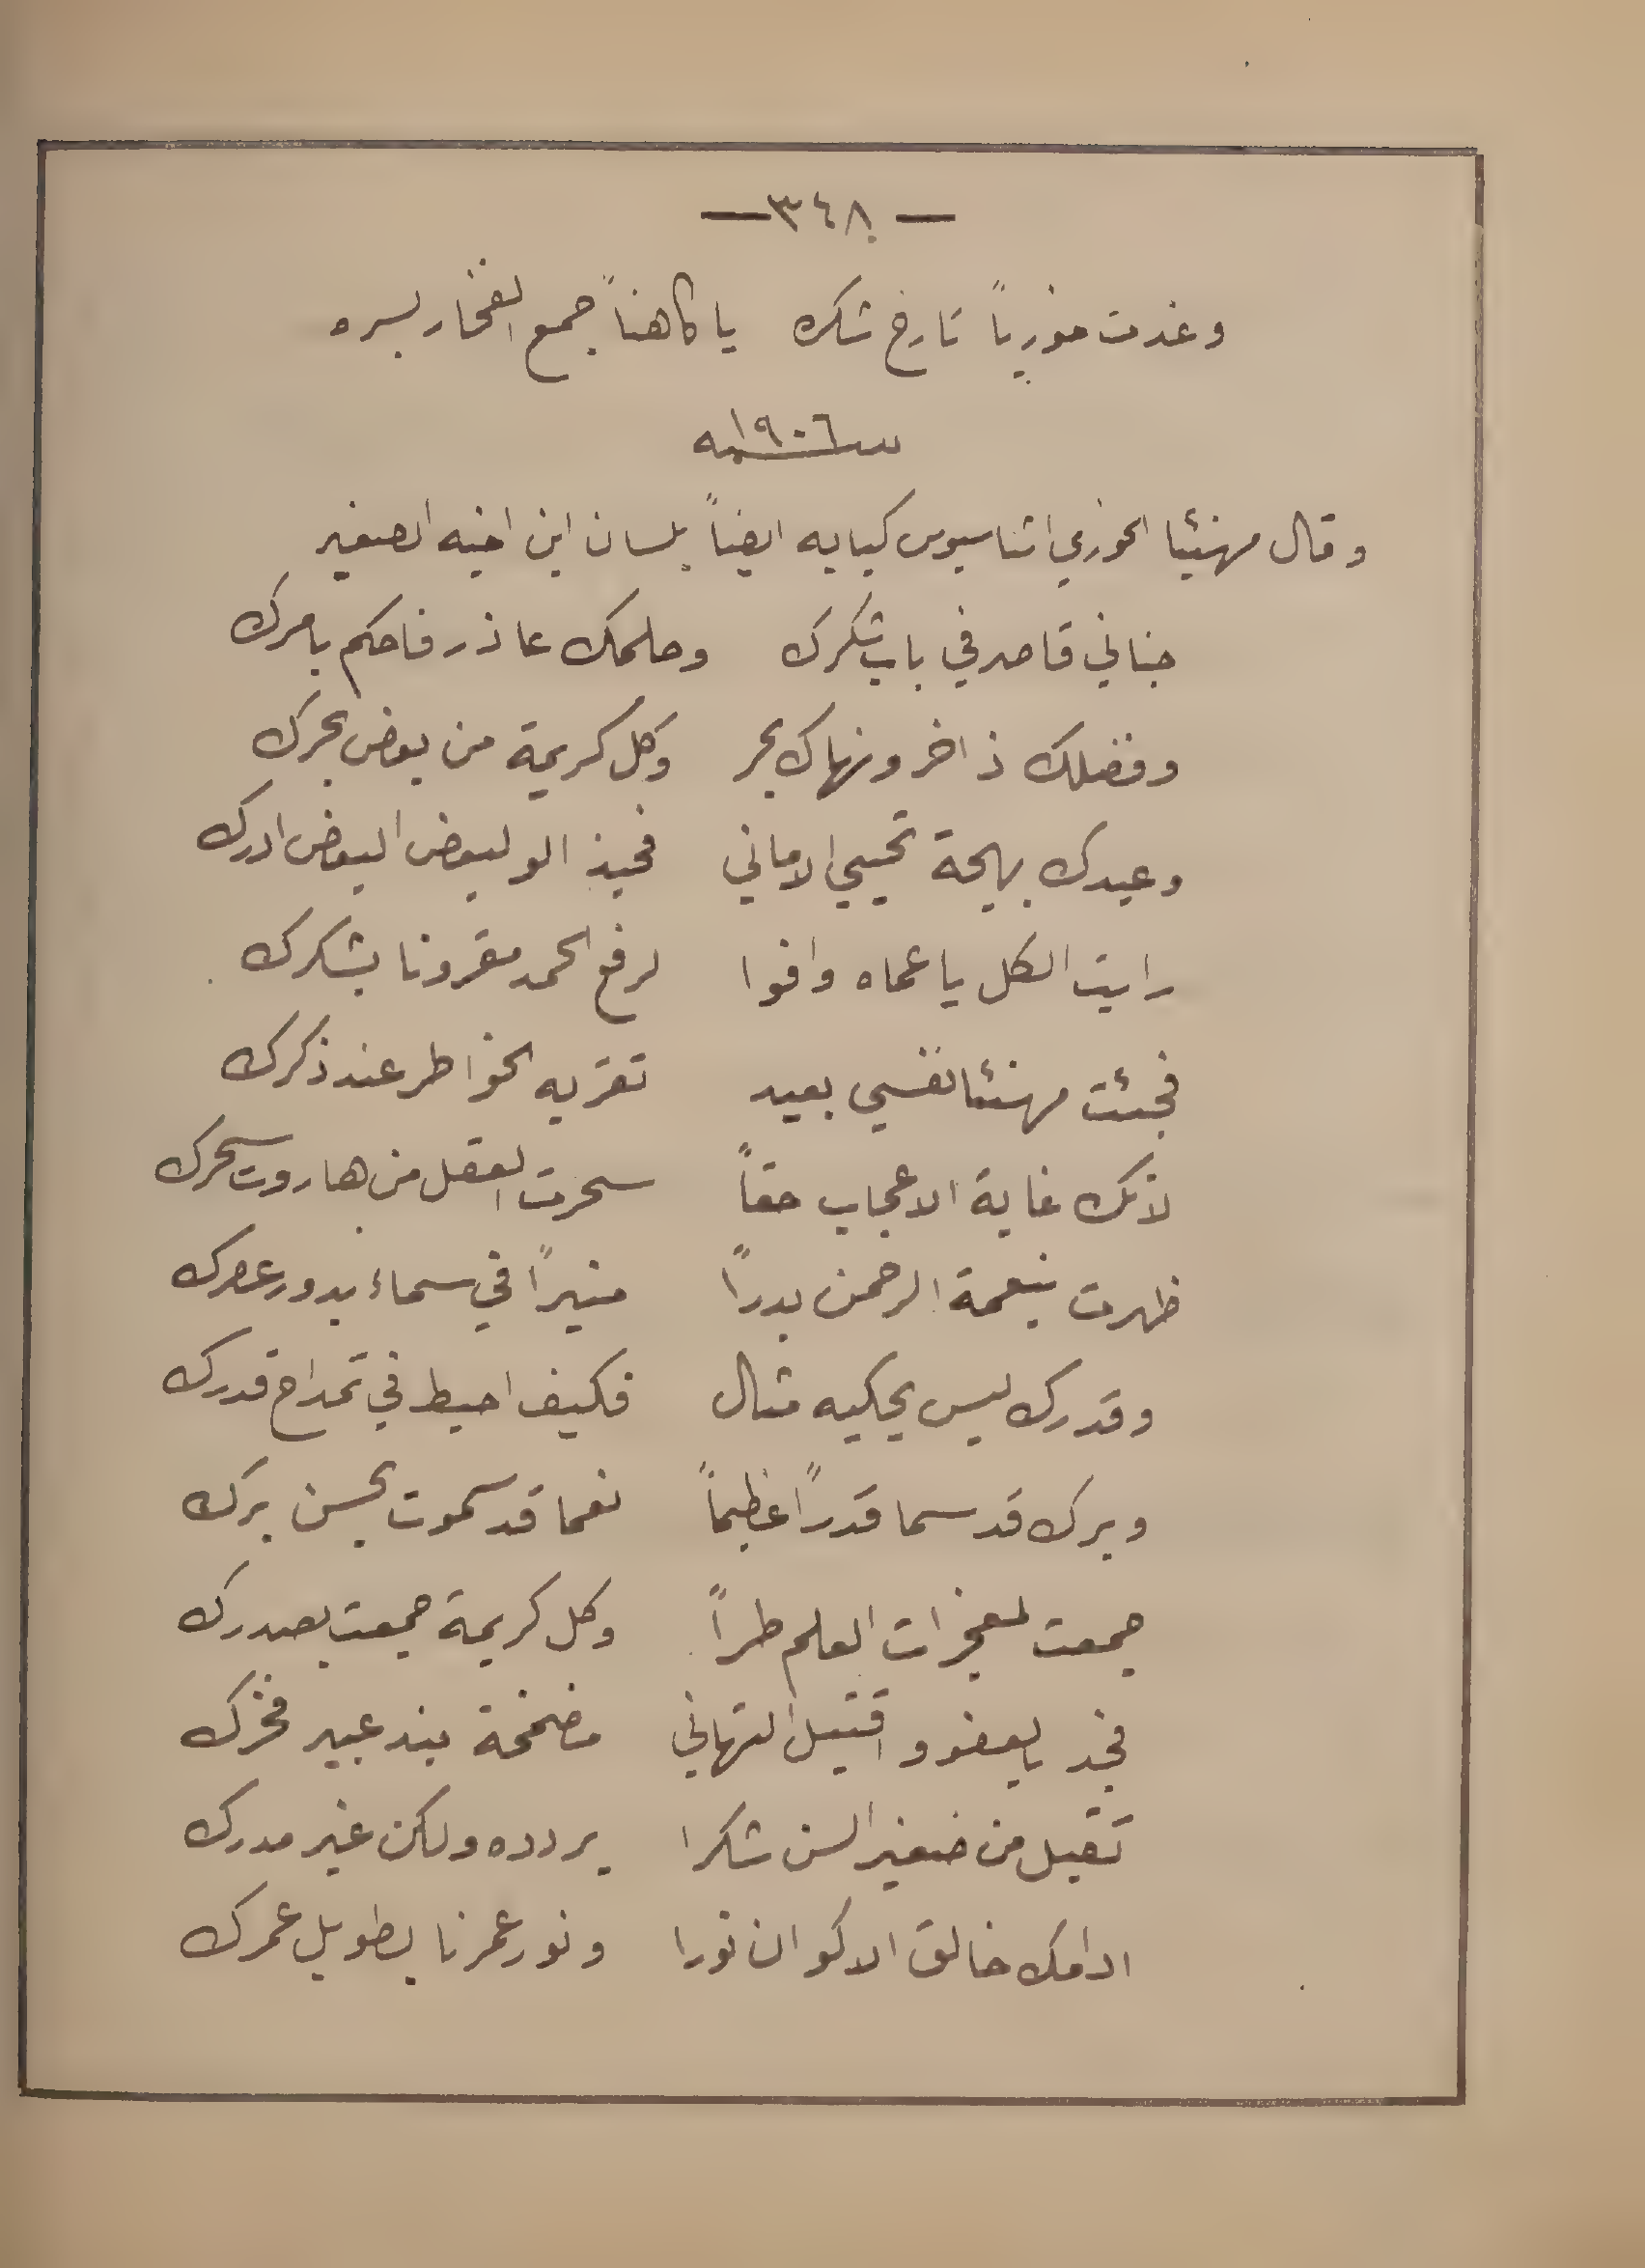 — ٣٤٨ —
وغدت خورياً تارخ شكره يا كاهناً جمع الفخار بسره
سنة ١٩٠٦
وقال مهنئا الخوري اثناسيوس كبابه ايضاً بلسان ابن اخيه الصغير
جناني قاصد في باب شكرك وحلمك عاذر فاحكم بامرك
وفضلك ذاخر ونهاك بحر وكل كريمة من بعض بحرك
وعيدك بهجة تحيي الاماني فحبذا لو لبعض البعض ادرك
رايت الكل يا عماه وافوا لرفع الحمد مقرونا بشكرك
فجئت مهنئا نفسي بعيد تقر به الخواطر عند ذكرك
لانك غاية الاعجاب حقاً سحرت العقل من هاروت سحرك
ظهرت بنعمة الرحمن بدراً منيراً في سماء بدور عصرك
وقدرك ليس يحكيه مثال فكيف احيط في تمداح قدرك
وبرك قد سما قدراً عظيماً نعما قد سموت بحسن برك
جمعت لمعجزات العلم طراً وكل كريمة جمعت بصدرك
فجد بالعفو واقتبل التهاني مضمخة بند عبير فخرك
تقبل من صغير السن شكرا يردده ولكن غير مدرك
ادامك خالق الاكوان نورا ونور عمرنا بطويل عمرك